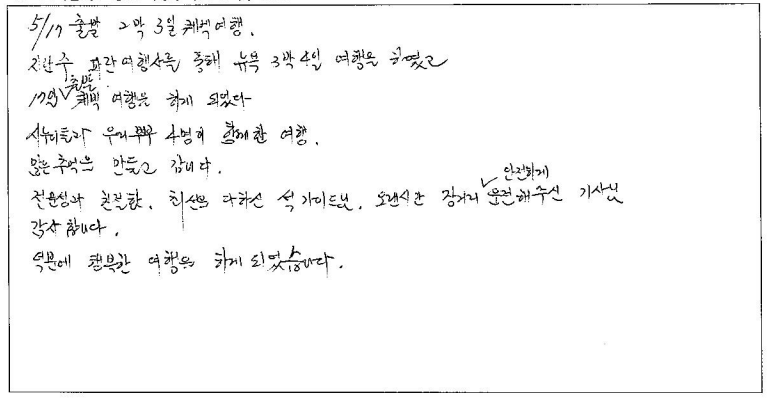 5/17 출발 2박 3일 퀘벡여행.
지난주 파란여행사를 통해 뉴욕 3박4일 여행을 하였고
17일 출발 퀘벡 여행을 하게 되었다
시누이들과 우리 부부 4명이 함께한 여행.
많은 추억을 만들고 갑니다.
전문성과 친절함, 최선을 다하신 석 가이드님, 오랜시간 장거리 안전하게 운전해주신 기사님
감사합니다.
덕분에 행복한 여행을 하게 되었습니다.